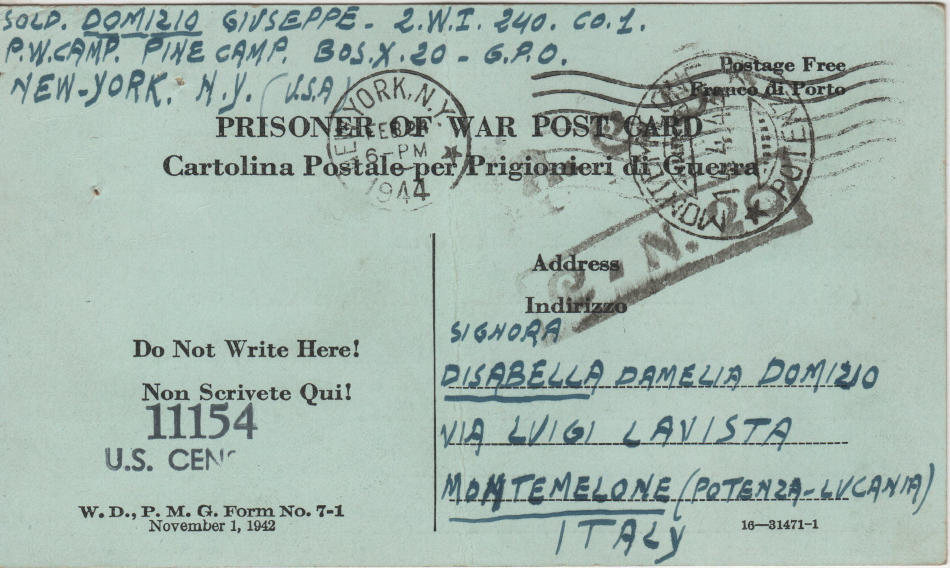 SOLD. DOMIZIO GIUSEPPE - 2.W.I. 240. CO.1.
P.W.CAMP. PINE CAMP. BOS.X.20 - G.P.O.
NEW-YORK. N.Y. (U.S.A)
Postage Free
Franco di Porto
YORK, N.Y.
6-PM
1944
PRISONER OF WAR POST CARD
Cartolina Postale per Prigionieri di Guerra
POTENZA
Address
Indirizzo
Do Not Write Here!
Non Scrivete Qui!
11154
U.S. CENS
W. D., P. M. G. Form No. 7-1
November 1, 1942
SIGNORA
DISABELLA DAMELIA DOMIZIO
VIA LUIGI LAVISTA
MONTEMELONE (POTENZA-LUCANIA)
ITALY
16—31471-1